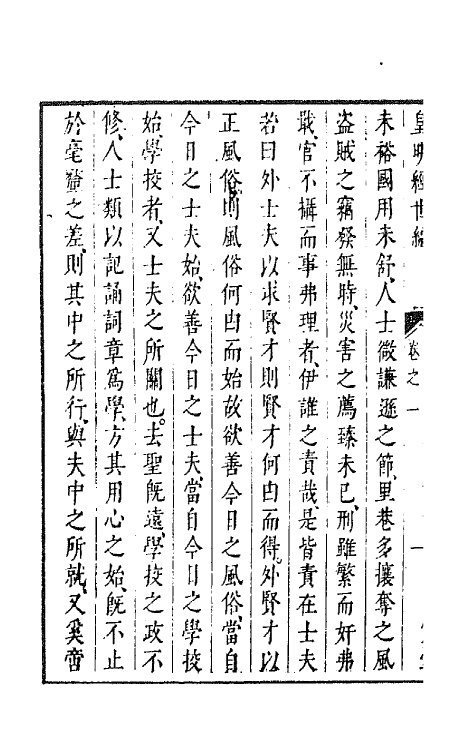 皇明經世編 卷之一 一
未裕國用未舒人士微謙遜之節里巷多攘奪之風
盜賊之竊發無時災害之薦臻未已刑雖繁而奸弗
戢官不攝而事弗理者伊誰之責哉是皆責在士夫
若曰外士夫以求賢才則賢才何由而得外賢才以
正風俗則風俗何由而始故欲善今日之風俗當自
今日之士夫始欲善今日之士夫當自今日之學挍
始學挍者又士夫之所關也去聖旣遠學挍之政不
修人士類以記誦詞章爲學方其用心之始旣不止
於毫釐之差則其中之所行與夫中之所就又奚啻